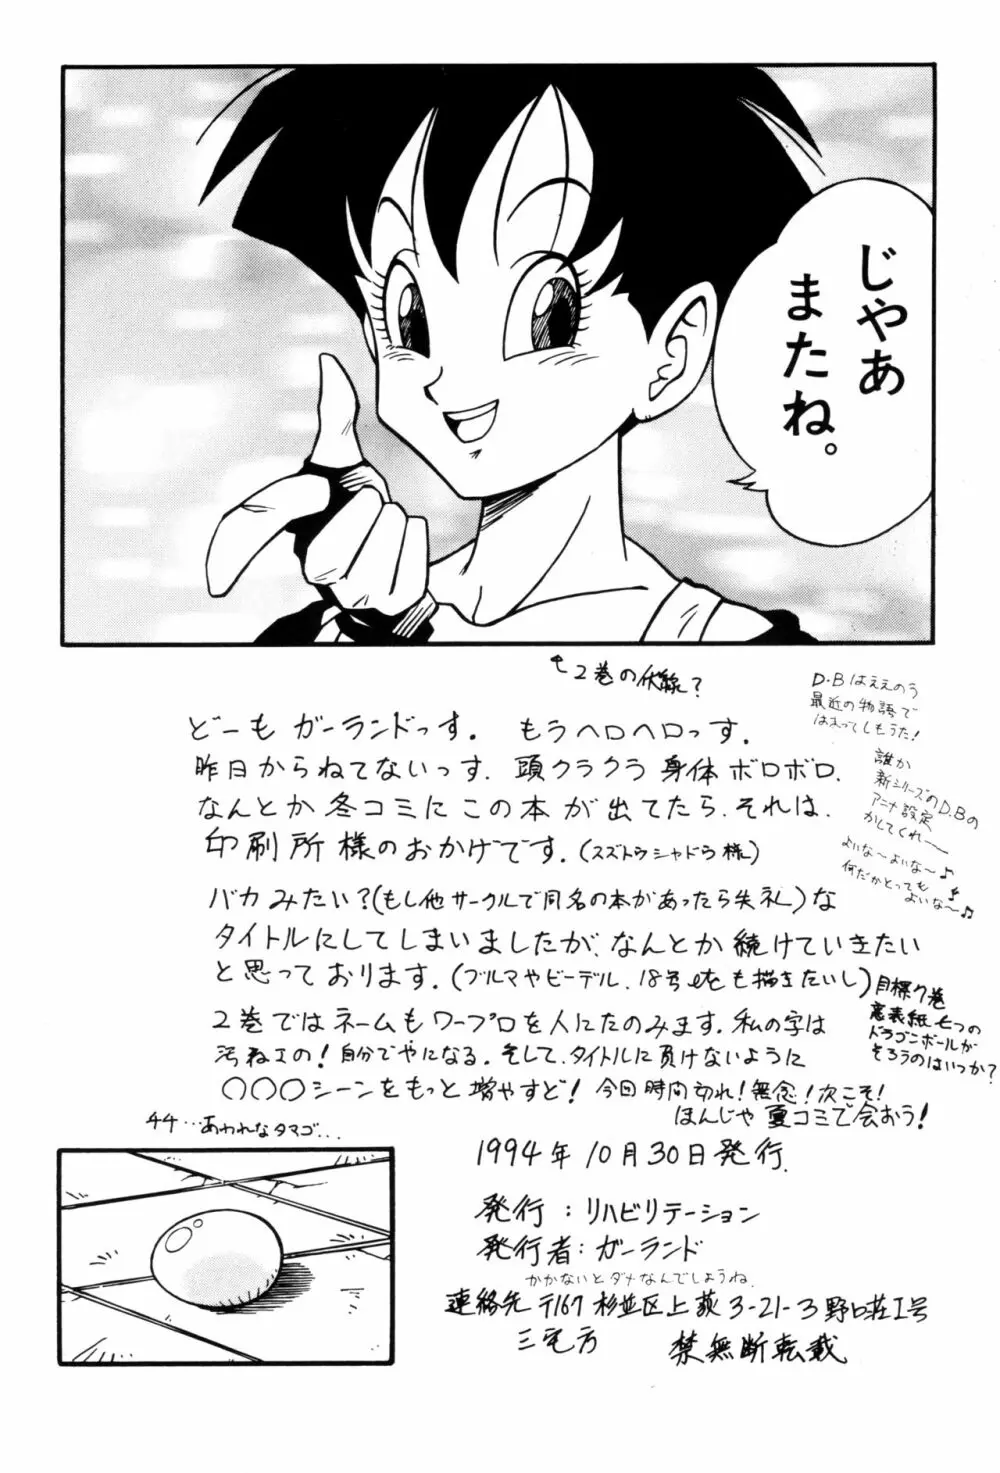 じゃあ
またね。
↑2巻の伏線?
D.Bはええのう
最近の物語で
はまってしもうた!
誰か
新シリーズのD.Bの
アニメ設定
かしてくれ〜
よいな〜よいな〜♪
何だかとっても
よいな〜♫
どーも ガーランドっす。 もうヘロヘロっす。
昨日からねてないっす. 頭クラクラ 身体ボロボロ.
なんとか 冬コミに この本 が 出てたら、それは、
印刷所様のおかげです。(スズトウシャドウ様)
バカみたい?(もし他サークルで同名の本があったら失礼)な
タイトルにしてしまいましたが、なんとか 続けていきたい
と思っております。(ブルマやビーデル、18号etcも描きたいし)
目標7巻
裏表紙七つの
ドラゴンボールが
そろうのはいつか?
2巻ではネームもワープロを人にたのみます。私の字は
汚ねェの!自分でやになる。そして、タイトルに負けないように
〇〇〇シーンをもっと増やすど! 今回時間切れ!無念!次こそ!
ほんじゃ 夏コミで会おう!
44…あわれなタマゴ...
1994年10月30日発行.
発行:リハビリテーション
発行者:ガーランド
かかないとダメなんでしょうね.
連絡先 〒167 杉並区上荻3-21-3野口荘1号
三宅方 禁無断転載